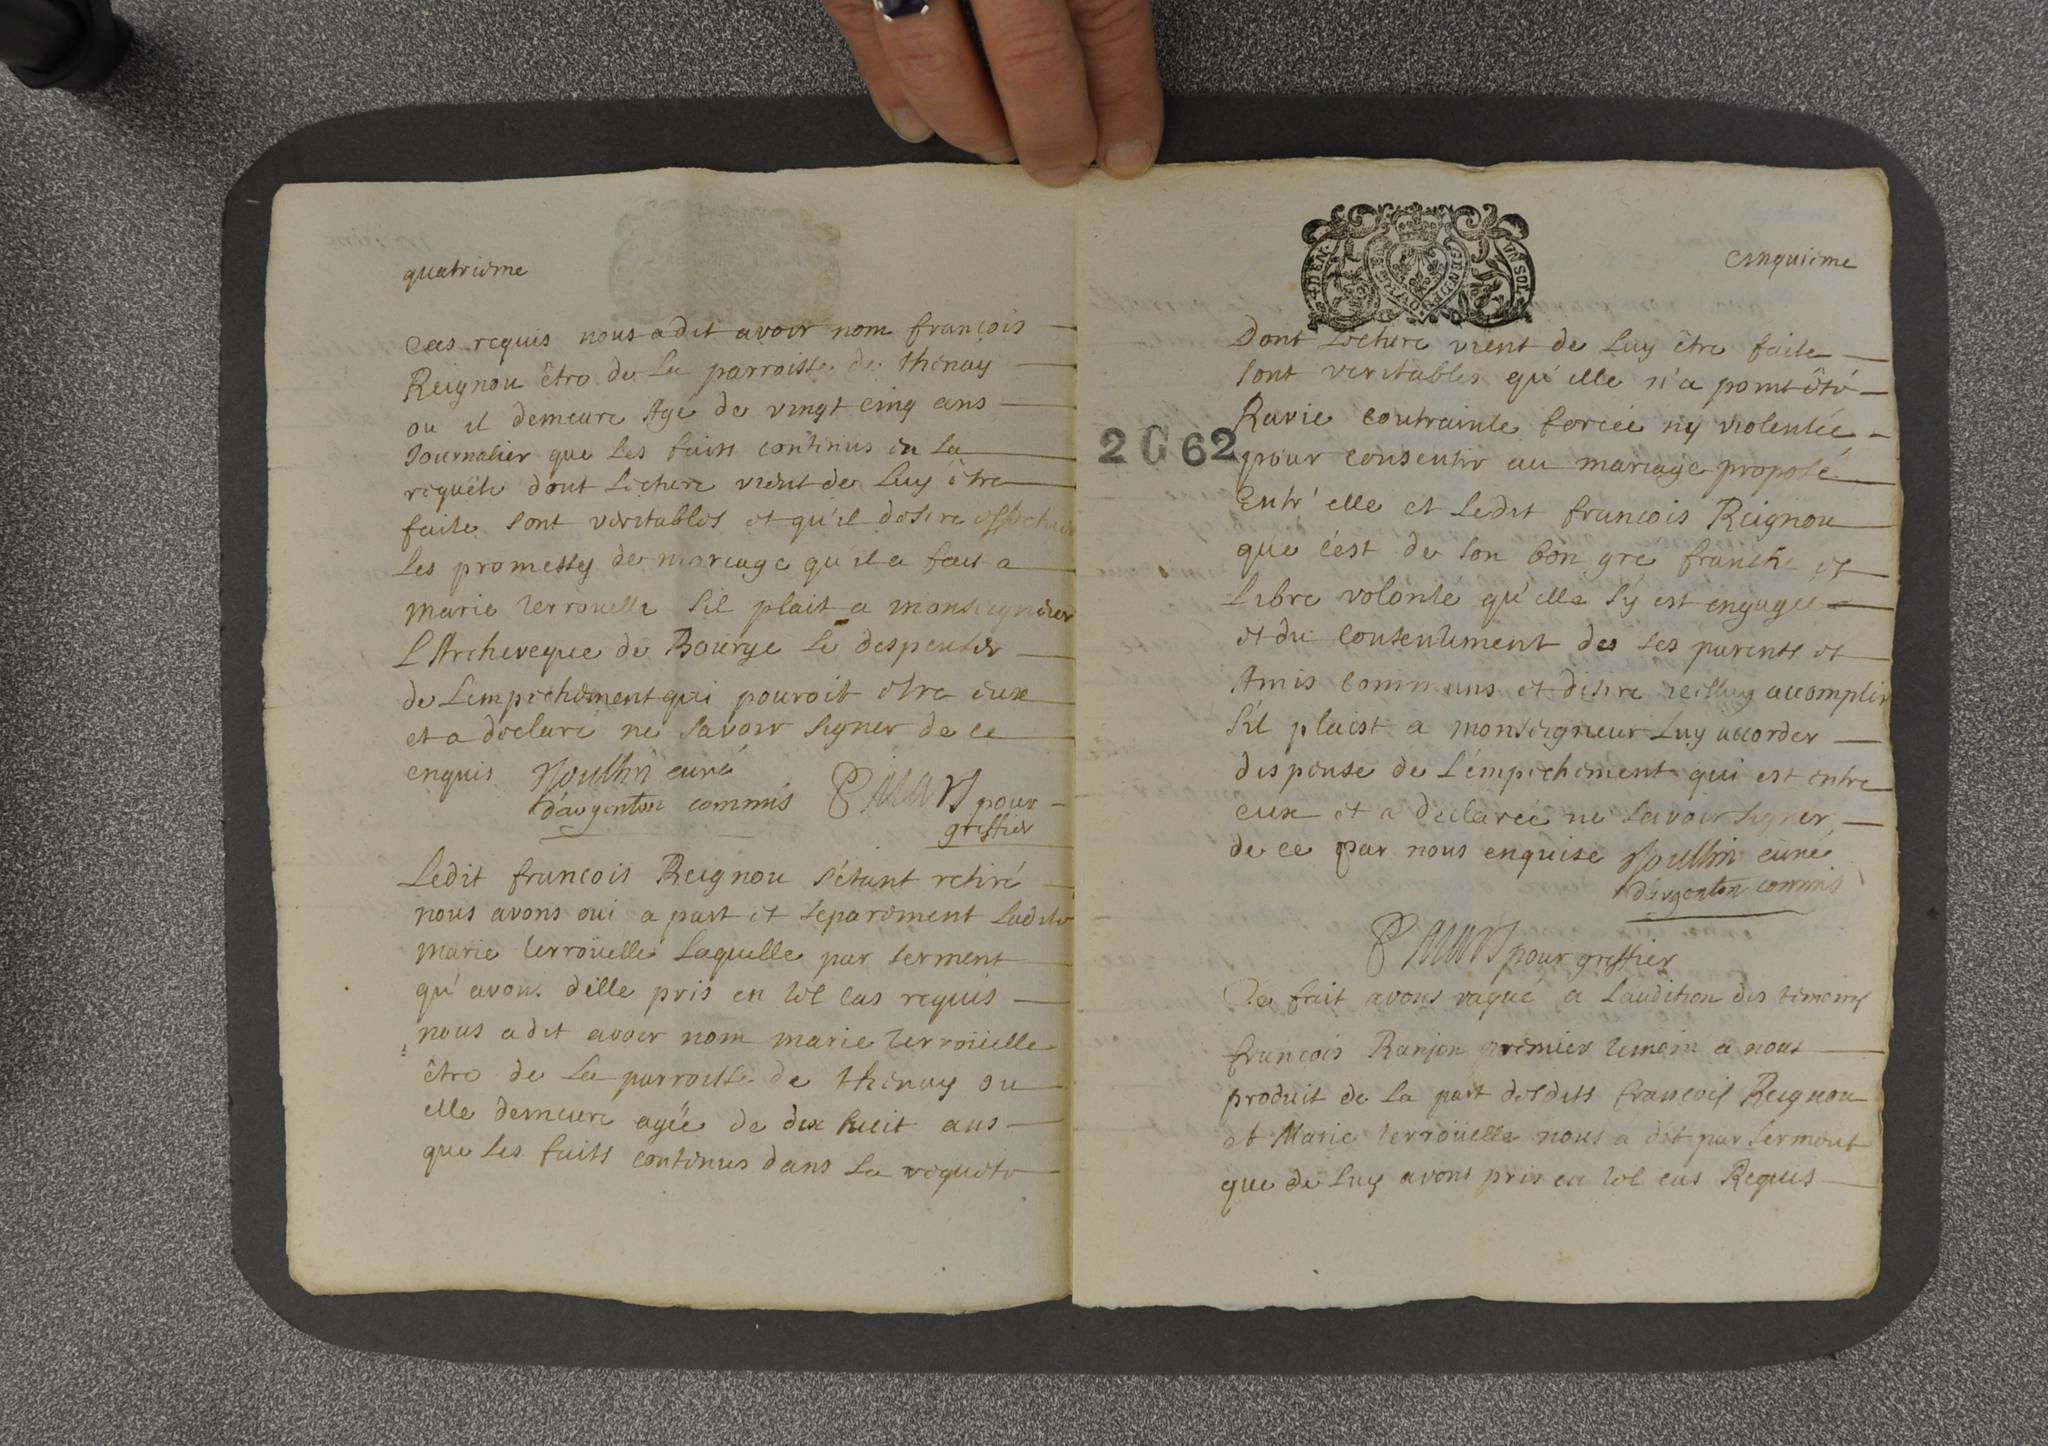 quatrieme
Cas requis nous a dit avoir nom françois
Reignou être de La parroisse de thenay
ou il demeure Agé de vingt cinq ans
Journalier que Les faits contenus en La
requête dont Lecture vient de Luy être
faite sont veritables et qu'il desire effectuer
Les promesses de mariage qu'il a fait a
marie Terrouelle s'il plait a monseigneur
L'Archeveque de Bourge Le despenser
de L'empechement qui pouroit etre eux
et a declaré ne savoir signer de ce
enquis curé
d'argenton commis pour
greffier
Ledit francois Reignou s'étant retiré
nous avons oui a part et separement Ladite
marie Terroüelle Laquelle par serment
qu'avons d'elle pris en tel cas requis
nous a dit avoir nom marie Terroüelle
être de La parroisse de thenay ou
elle demeure agée de dix huit ans
que Les faits contenus dans La requete
4 DEN. UN SOL
cinquieme
Dont Lecture vient de Luy être faite
sont veritables qu'elle n'a point été
Ravie contrainte forcée ny violentée
2 G 62
pour consentir au mariage proposé
Entr'elle et Ledit francois Reignou
que c'est de son bon gré franche et
Libre volonté qu'elle s'y est engagée
et du consentement des ses parents et
Amis communs et desire accomplir
s'il plaist a monseigneur Luy accorder
dispense de L'empechement qui est entre
eux et a declarée ne savoir signer
de ce par nous enquise curé
d'argenton commis
pour greffier
De fait avons vaqué a L'audition des temoins
francois Ranjon premier temoin a nous
produit de La part desdits francois Reignou
et Marie Terroüelle nous a dit par serment
que de Luy avons pris en tel cas Requis